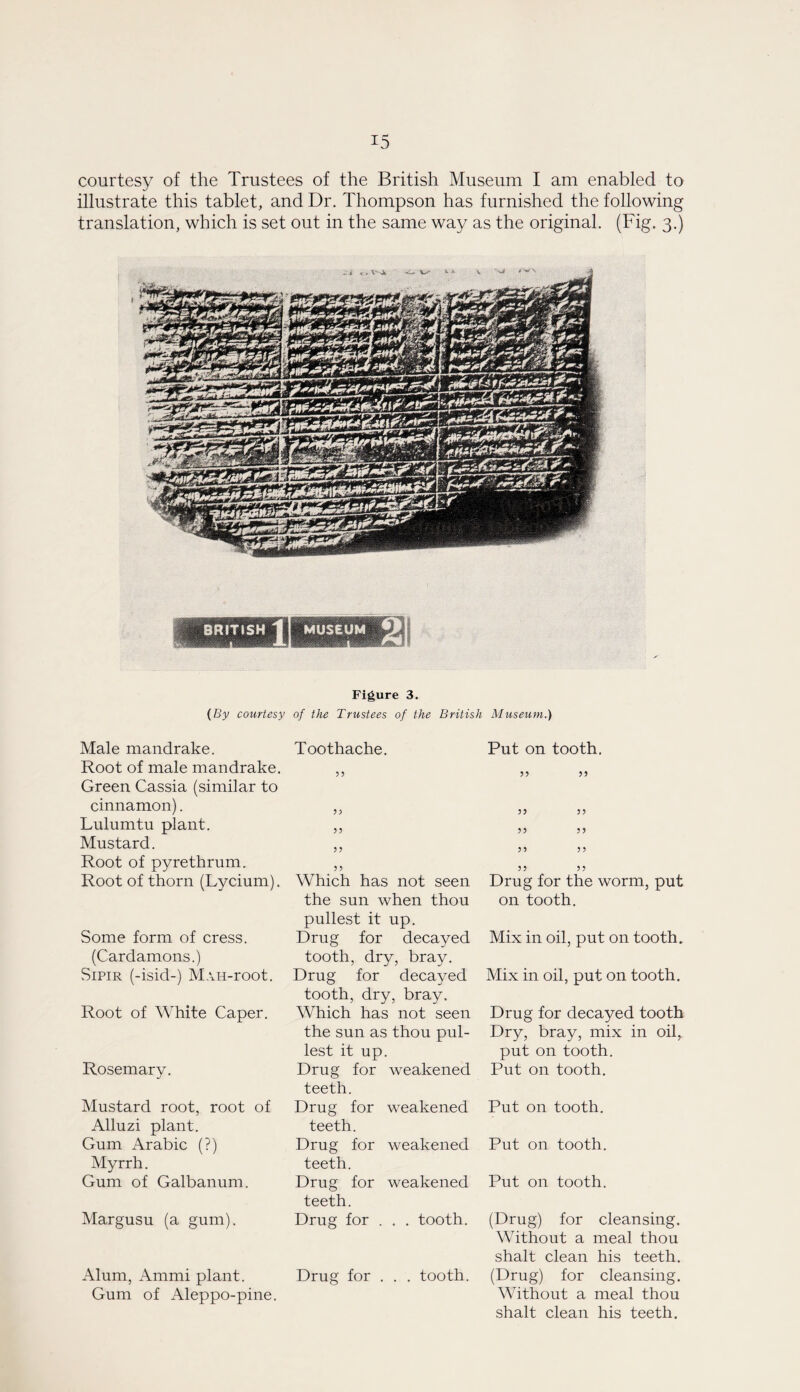 15
courtesy of the Trustees of the British Museum I am enabled to
illustrate this tablet, and Dr. Thompson has furnished the following
translation, which is set out in the same way as the original. (Fig. 3.)
BRITISH 1 MUSEUM 2
Figure 3.
(By courtesy of the Trustees of the British Museum.)
Male mandrake. Toothache. Put on tooth.
Root of male mandrake. ,, ,, ,,
Green Cassia (similar to
cinnamon). ,, ,, ,,
Lulumtu plant. ,, ,, ,,
Mustard. ,, ,, ,,
Root of pyrethrum. ,, ,, ,,
Root of thorn (Lycium). Which has not seen Drug for the worm, put
the sun when thou on tooth.
pullest it up.
Some form of cress. Drug for decayed Mix in oil, put on tooth.
(Cardamons.) tooth, dry, bray.
Sipir (-isid-) Mah-root. Drug for decayed Mix in oil, put on tooth.
tooth, dry, bray.
Root of White Caper. Which has not seen Drug for decayed tooth
the sun as thou pul- Dry, bray, mix in oil,
lest it up. put on tooth.
Rosemary. Drug for weakened Put on tooth.
teeth.
Mustard root, root of Drug for weakened Put on tooth.
Alluzi plant. teeth.
Gum Arabic (?) Drug for weakened Put on tooth.
Myrrh. teeth.
Gum of Galbanum. Drug for weakened Put on tooth.
teeth.
Margusu (a gum). Drug for . . . tooth. (Drug) for cleansing.
Without a meal thou
shalt clean his teeth.
Alum, Ammi plant. Drug for . . . tooth. (Drug) for cleansing.
Gum of Aleppo-pine. Without a meal thou
shalt clean his teeth.